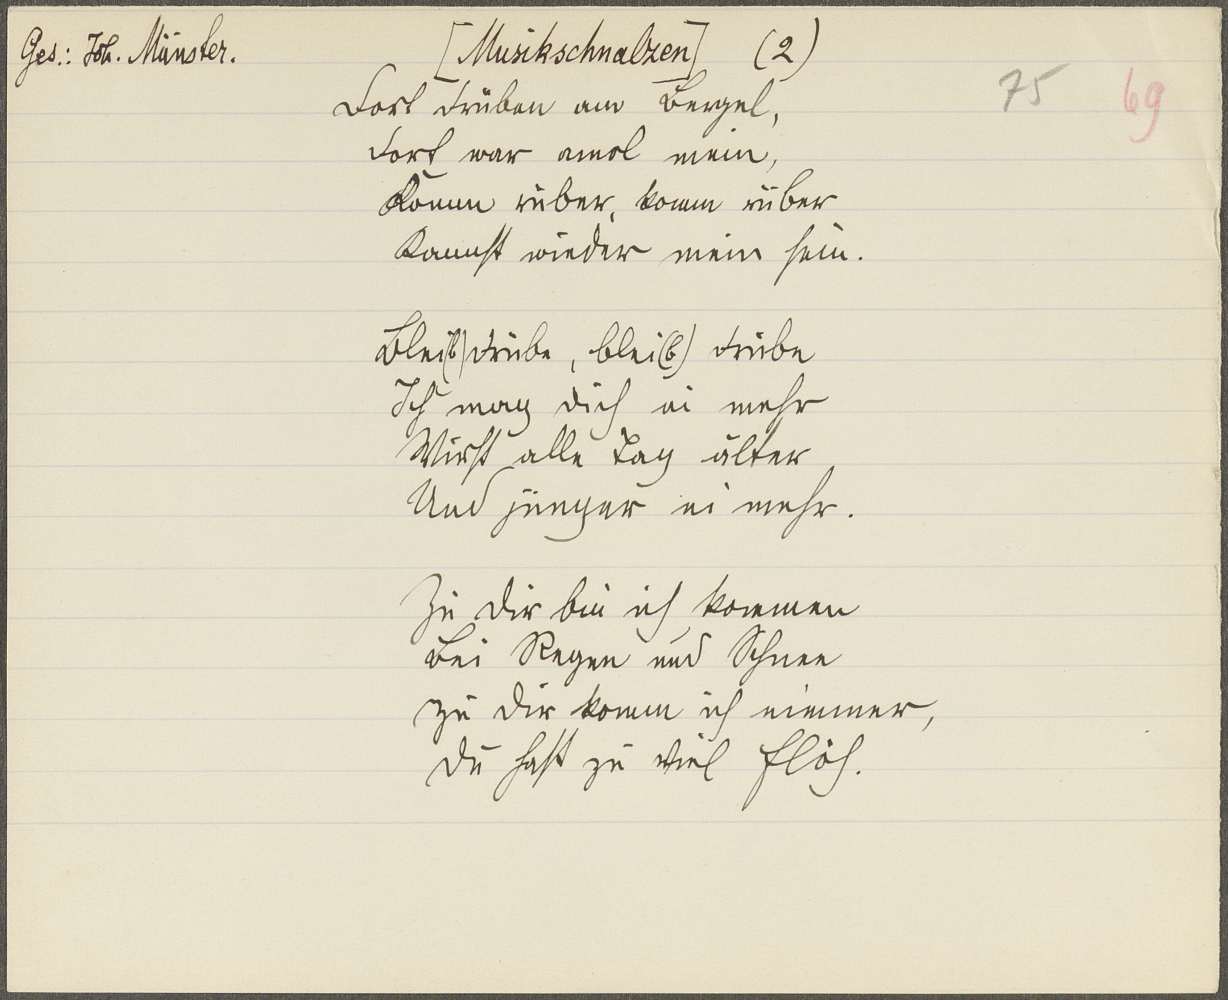 Ges.: Joh. Münster. [Musikschnalzen] (2)
75 69
Dort drüben am Bergel,
dort war amol mein,
Komm rüber, komm rüber
Kannst wieder mein sein.
Blei(b) drübe, blei(b) drübe
Ich mag dich ni mehr
Wirst alle Tag älter
Und jünger ni mehr.
Zu dir bin ich kommen
Bei Regen und Schnee
zu dir komm ich nimmer,
du hast zu viel Flöh.